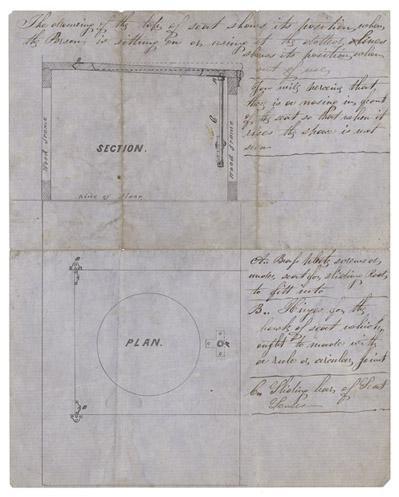 The drawing of the top of seat shows its position when
the Person is sitting on or using it the dotted lines
shows its position when
out of use
You will perceive that
they is a nosing in front
of the seat so that when it
rises the space is not
seen
SECTION.
Wood frame
Wood frame
Line of floor
C
A.. Brass plate screwed on
under seat for sliding Rod
to fitt into
B.. Hinges for the
back of seat which
ought to made with
a rule or circular joint
C.. Sliding bar of Seat
PLAN.
B
B
A